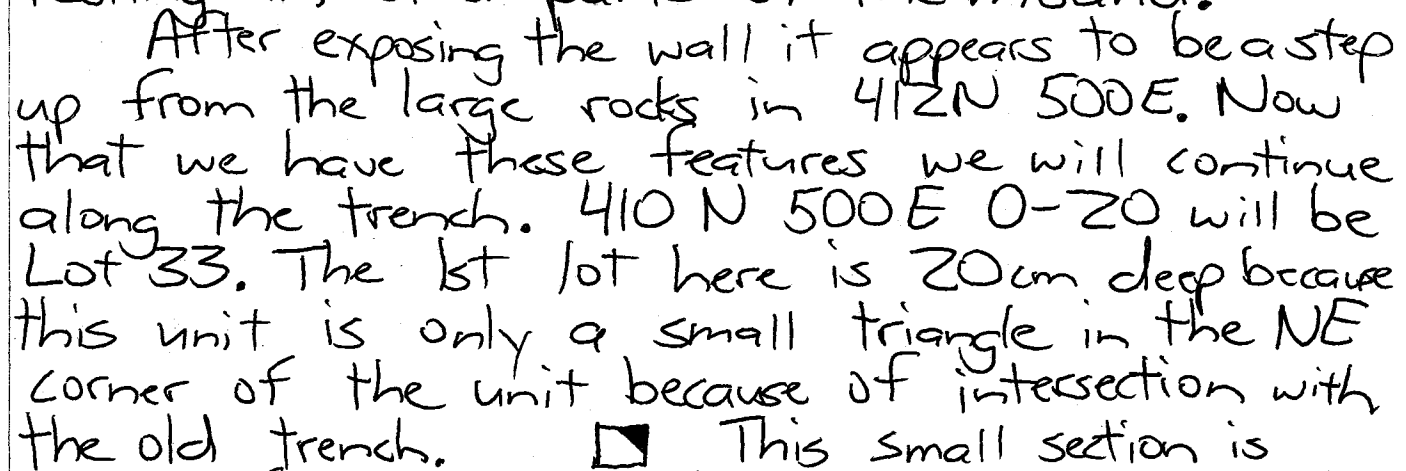 After exposing the wall it appears to be a step
up from the large rocks in 412N 500E. Now
that we have these features we will continue
along the trench. 410 N 500E 0-20 will be
Lot 33. The 1st lot here is 20cm deep because
this unit is only a small triangle in the NE
corner of the unit because of intersection with
the old trench. This small section is